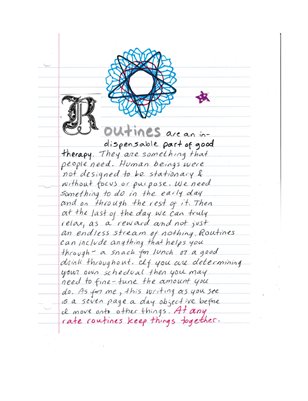 Routines are an in-
dispensable part of good
therapy. They are something that
people need. Human beings were
not designed to be stationary &
without focus or purpose. We need
something to do in the early day
and on through the rest of it. Then
at the last of the day we can truly
relax, as a reward and not just
an endless stream of nothing. Routines
can include anything that helps you
through - a snack for lunch or a good
drink throughout. If you are determining
your own schedual then you may
need to fine-tune the amount you
do. As for me, this writing as you see
is a seven page a day objective before
I move onto other things. At any
rate routines keep things together.